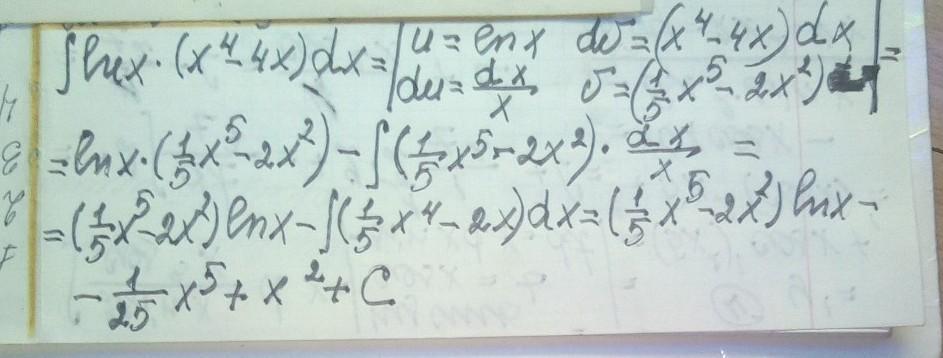 ∫ lnx · (x⁴ - 4x) dx = | u = lnx   dv = (x⁴ - 4x) dx | =
| du = dx/x   v = (1/5 x⁵ - 2x²) |
= lnx · (1/5 x⁵ - 2x²) - ∫ (1/5 x⁵ - 2x²) · dx/x =
= (1/5 x⁵ - 2x²) lnx - ∫ (1/5 x⁴ - 2x) dx = (1/5 x⁵ - 2x²) lnx -
- 1/25 x⁵ + x² + C